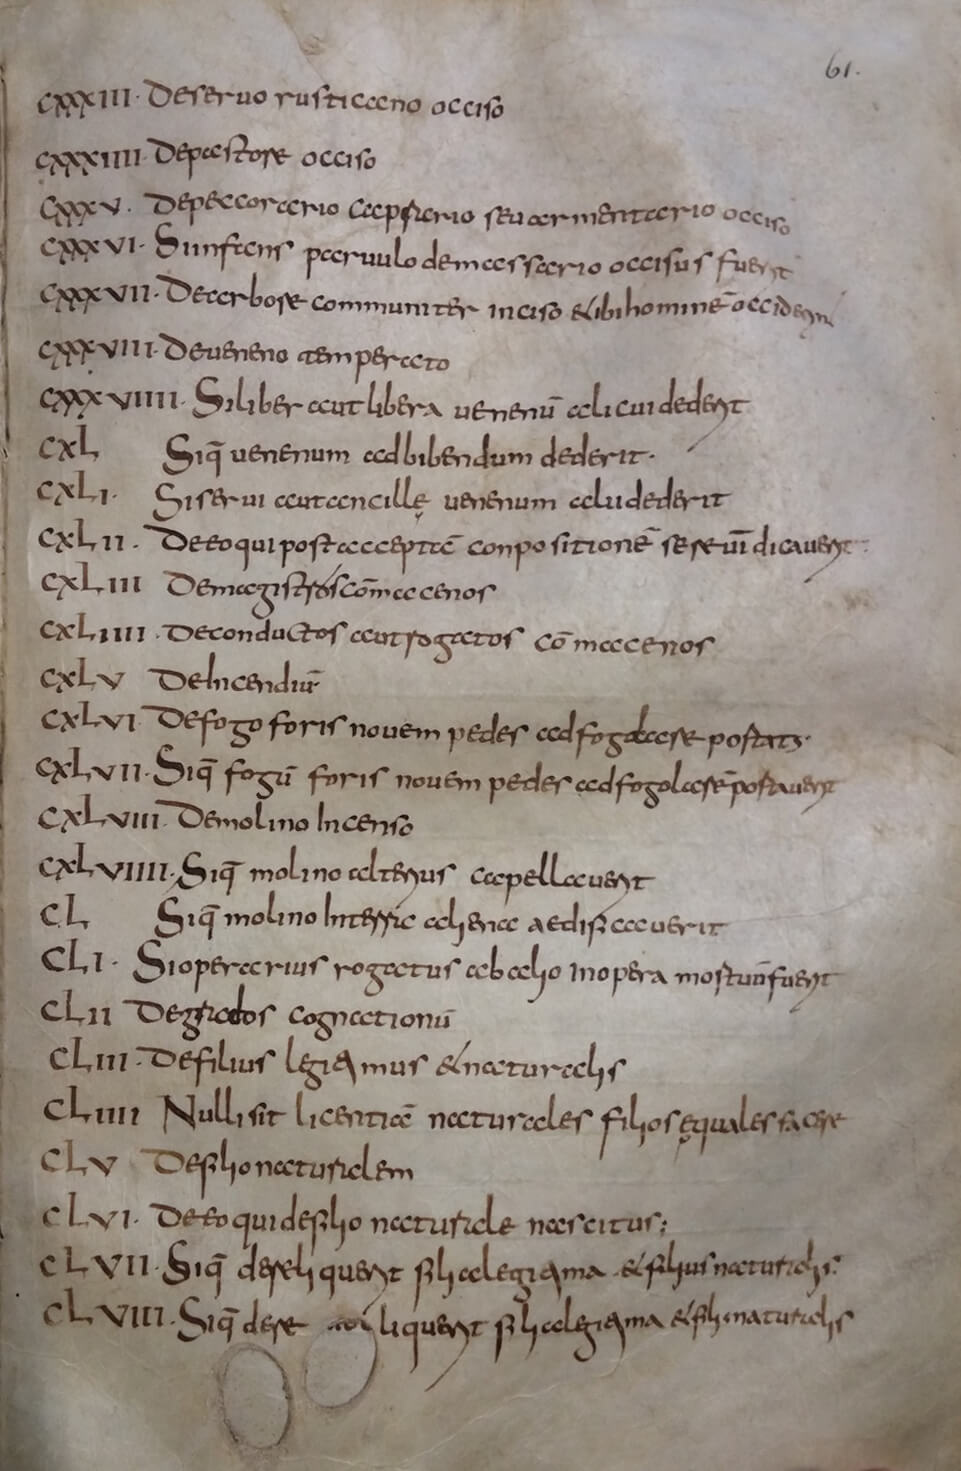 61.
CXXXIII· De servo rusticano occiso
CXXXIIII· De pastore occiso
CXXXV· De peccorario caprario seu armentario occiso
CXXXVI· Si infans parvulo de massario occisus fuerit
CXXXVII· De arbore communiter inciso & ibi hominē occiderit
CXXXVIII· De veneno temperato
CXXXVIIII· Si liber aut libera venenū alicui dederit
CXL Si q̄ venenum ad bibendum dederit·
CXLI· Si servi aut ancillę venenum alii dederit
CXLII· De eo qui post acceptā conpositionē se se vīdicaverit
CXLIII De magistros cōmacenos
CXLIIII· De conductos aut rogatos cōmacenos
CXLV De Incendiū
CXLVI De fogo foris novem pedes ad fogolare
CXLVII· Si q̄ fogū foris novem pedes ad fogolare portaverit
CXLVIII· De molino Incenso
CXLVIIII· Si q̄ molino alterius capellaverit
CL Si q̄ molino In terra aliena aedificaverit
CLI· Si operarius rogatus ab alio in opera mortuū fuerit
CLII De grados cognationū
CLIII· De filius legiptimus & naturalis
CLIIII Nulli sit licentiā naturales filios ęquales facere
CLV De filio naturalem
CLVI· De eo qui de filio naturale nascitur;
CLVII· Si q̄ dereliquerit filia legiptima & filius naturalis:
CLVIII· Si q̄ dere liquerit filia legiptima & fili naturalis